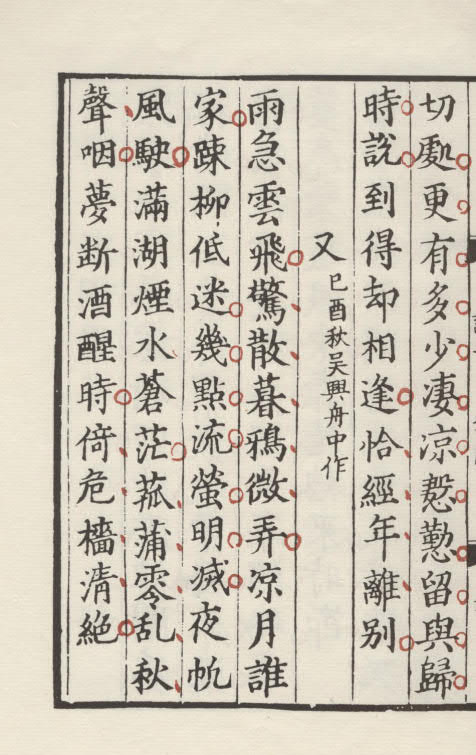 切處更有多少淒凉慇懃留與歸
時說到得却相逢恰經年離别
又己酉秋吴興舟中作
雨急雲飛驚散暮鴉微弄凉月誰
家踈柳低迷幾點流螢明滅夜帆
風駛滿湖煙水蒼茫菰蒲零亂秋
聲咽夢断酒醒時倚危檣清絶